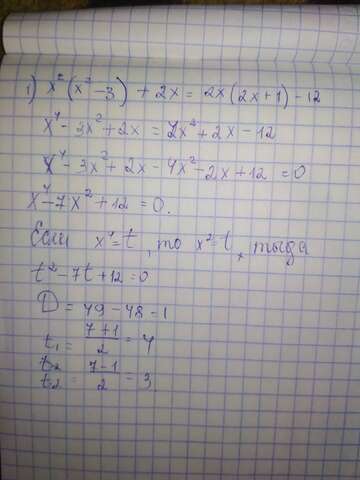 1) x²(x²-3) + 2x = 2x(2x+1)-12
x⁴-3x²+2x = 4x²+2x-12
x⁴-3x²+2x-4x²-2x+12=0
x⁴-7x²+12=0.
Если x⁴=t, то x²=t, тогда
t²-7t+12=0
D=49-48-1
t₁=(7+1)/2=4
t₂ t₂=(7-1)/2=3.